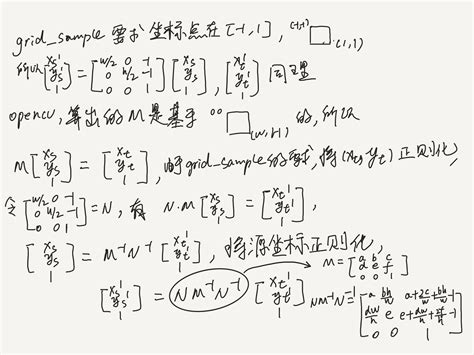 grid_sample 要求坐标点在 [-1,1], (-1,-1) □ (1,1)
所以 [xs' ys' 1] = [w/2 0 -1 0 h/2 -1 0 0 1] [xs ys 1], [xt' yt' 1] 同理
opencv, 算出的M是基于 00 □ (w,h) 的, 所以
M [xs ys 1] = [xt yt 1], 由grid_sample的要求, 将(xt, yt) 正则化,
令 [w/2 0 -1 0 h/2 -1 0 0 1] = N, 有 N·M [xs ys 1] = [xt' yt' 1],
[xs ys 1] = M⁻¹N⁻¹ [xt' yt' 1], 将源坐标正则化,
[xs' ys' 1] = NM⁻¹N⁻¹ [xt' yt' 1] M = [a b c d e f 1]
NM⁻¹N⁻¹ = [a bh/w a+2c/w+bh/w-1 dw/h e e+dw/h+2f/h-1 0 0 1]